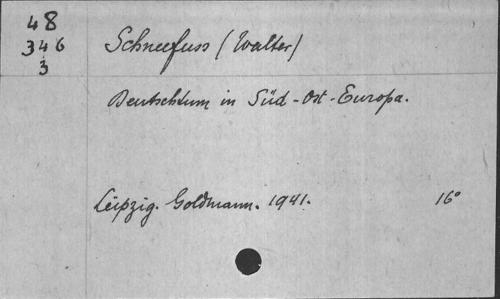 48
346
3
Schneefuss (Walter)
Deutschtum in Süd-Ost-Europa.
Leipzig. Goldmann. 1941. 16°